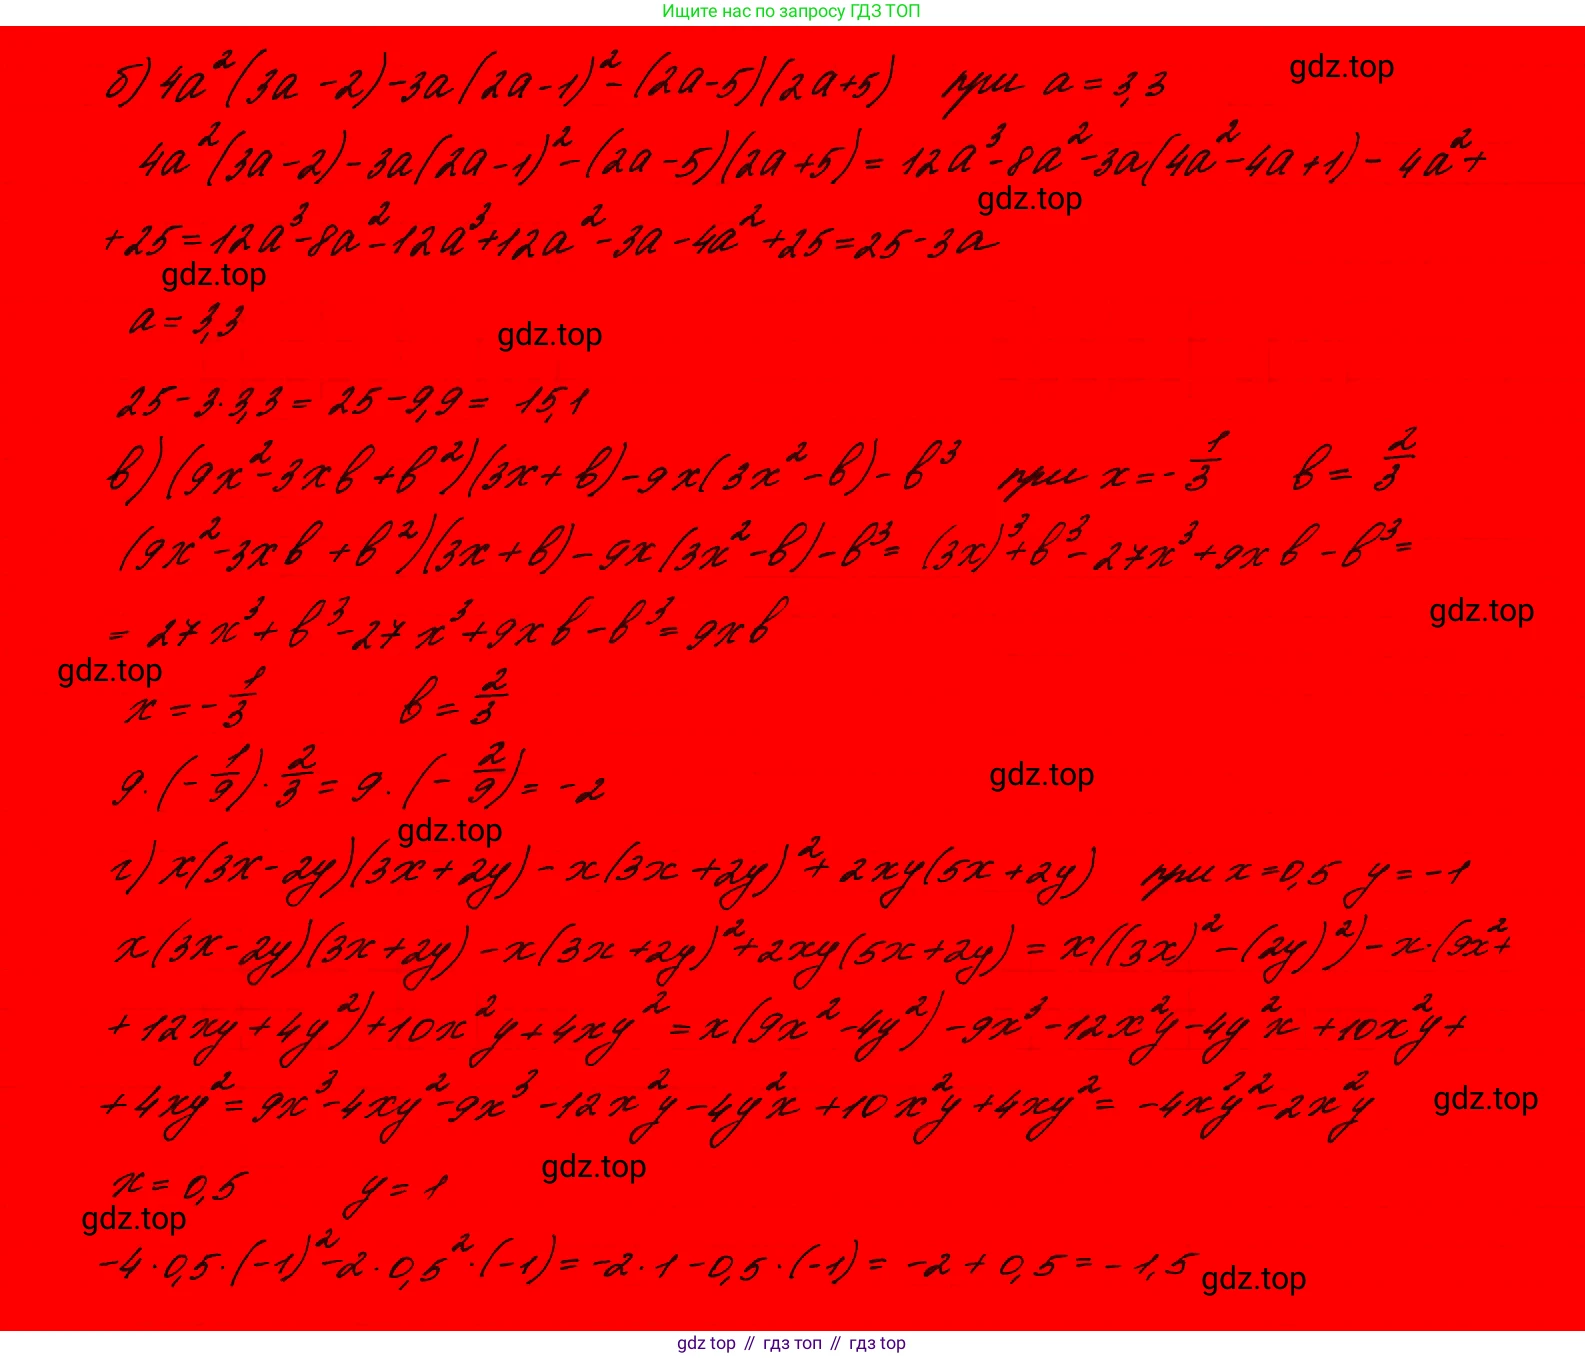 Ищите нас по запросу ГДЗ ТОП
б) 4a²(3a - 2) - 3a(2a - 1)² - (2a - 5)(2a + 5) при a = 3,3
gdz.top
4a²(3a - 2) - 3a(2a - 1)² - (2a - 5)(2a + 5) = 12a³ - 8a² - 3a(4a² - 4a + 1) - 4a² +
gdz.top
+ 25 = 12a³ - 8a² - 12a³ + 12a² - 3a - 4a² + 25 = 25 - 3a
gdz.top
a = 3,3
gdz.top
25 - 3·3,3 = 25 - 9,9 = 15,1
в) (9x² - 3xb + b²)(3x + b) - 9x(3x² - b) - b³ при x = -1/3 b = 2/3
(9x² - 3xb + b²)(3x + b) - 9x(3x² - b) - b³ = (3x)³ + b³ - 27x³ + 9xb - b³ =
gdz.top
= 27x³ + b³ - 27x³ + 9xb - b³ = 9xb
gdz.top
x = -1/3 b = 2/3
9·(-1/9)·2/3 = 9·(-2/9) = -2
gdz.top
gdz.top
г) x(3x - 2y)(3x + 2y) - x(3x + 2y)² + 2xy(5x + 2y) при x = 0,5 y = -1
x(3x - 2y)(3x + 2y) - x(3x + 2y)² + 2xy(5x + 2y) = x((3x)² - (2y)²) - x·(9x² +
+ 12xy + 4y²) + 10x²y + 4xy² = x(9x² - 4y²) - 9x³ - 12x²y - 4y²x + 10x²y +
+ 4xy² = 9x³ - 4xy² - 9x³ - 12x²y - 4y²x + 10x²y + 4xy² = -4x²y² - 2x²y
gdz.top
gdz.top
x = 0,5 y = 1
gdz.top
-4·0,5·(-1)² - 2·0,5²·(-1) = -2·1 - 0,5·(-1) = -2 + 0,5 = -1,5
gdz.top
gdz top // гдз топ // гдз top